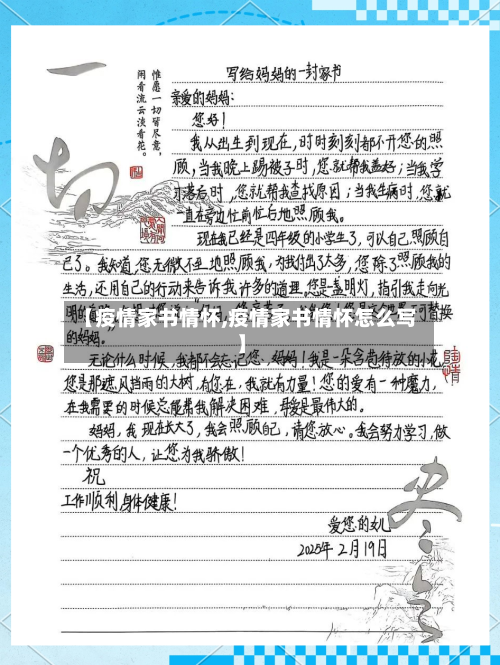 一切
惟愿一切皆尽意，
闲看流云淡看花。
写给妈妈的一封家书
亲爱的妈妈：
您好！
我从出生到现在，时时刻刻都不开您的照
顾，当我晚上踢被子时，您就帮我盖好；当我学
习落后时，您就帮我查找原因；当我生病时，您就
一直在旁边忙前忙后地照顾我。
现在我已经是四年级的小学生了，可以自己照顾自
己了。我知道，您无微不至地照顾我，为我付出了太多，您除了照顾我的
生活，还用自己的行动来告诉我许多的道理。您是盏明灯，指引我走向光
【疫情家书情怀,疫情家书情怀怎么写
】
的妈妈。
无论什么时候，我都不会忘记您。妈妈！我是一朵含苞待放的小花，
您是那遮风挡雨的大树，有您在，我就有力量！您的爱有一种魔力，
在我需要的时候总能帮我解决困难，母爱是最伟大的。
妈妈，我现在长大了，我会照顾自己，请您放心。我会努力学习，做
一个优秀的人，让您为我骄傲！
祝
工作顺利身体健康！
爱您的女儿
2025年2月19日